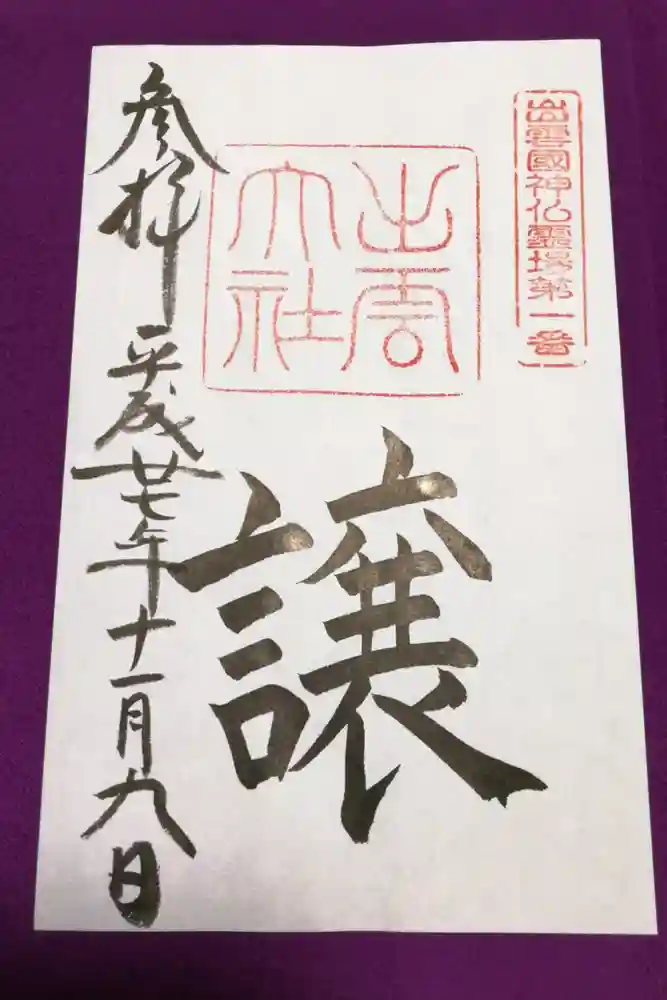 出雲國神仏霊場第一番
出雲
大社
譲
参拝
平成廿七年十一月九日